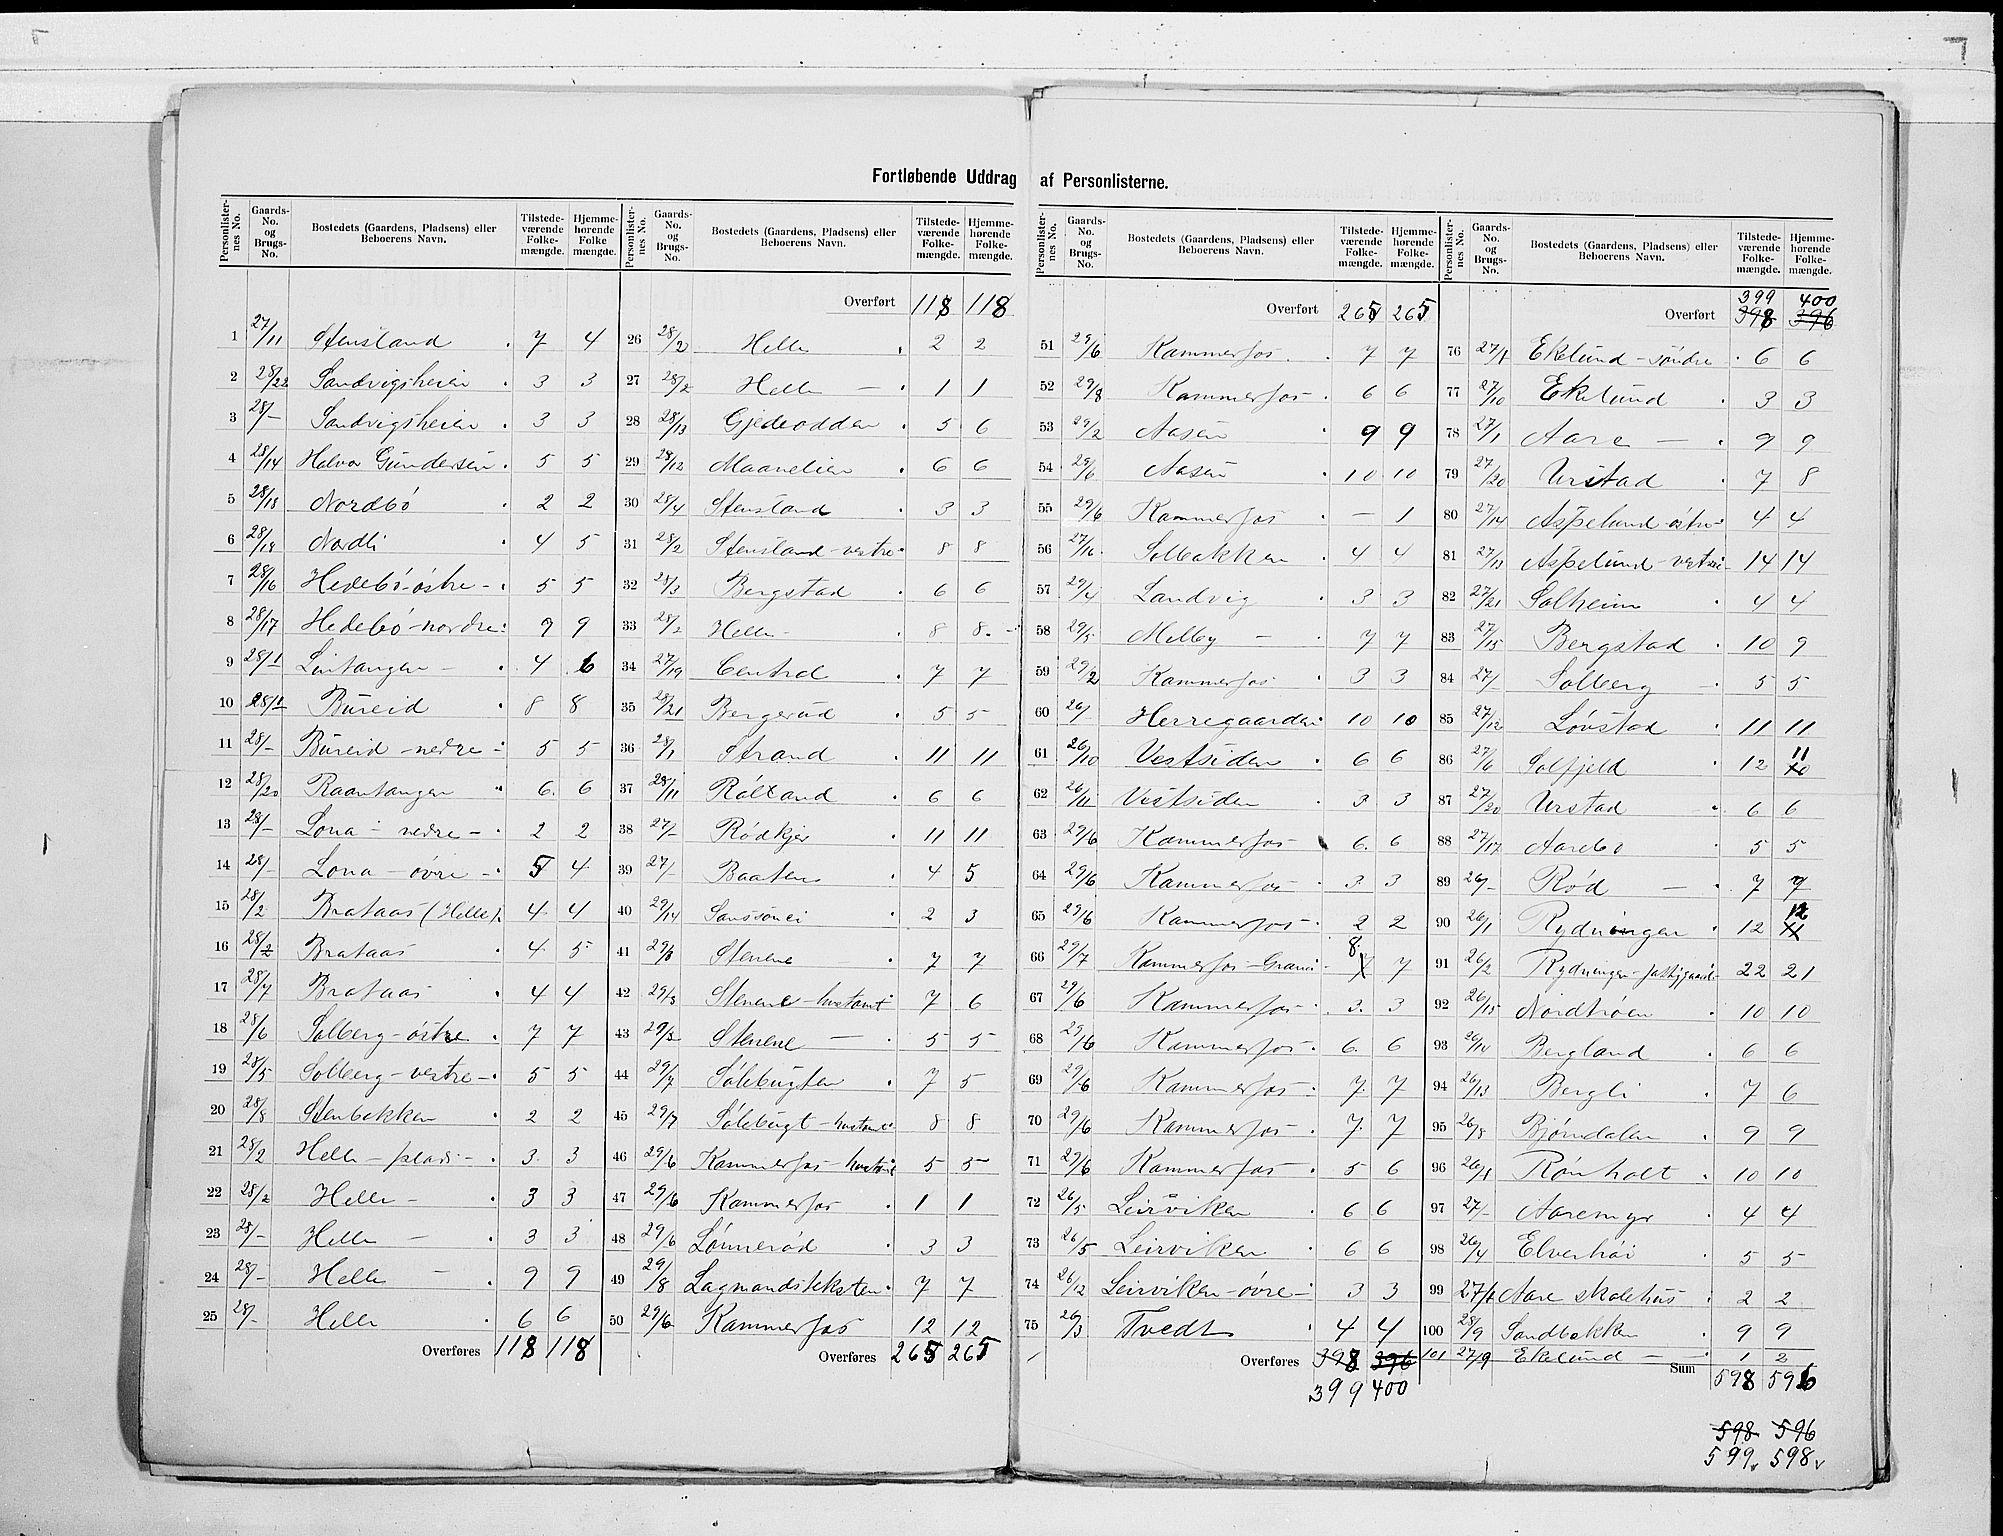 Fortløbende Uddrag af Personlisterne.
Personlisternes No. Gaards-No. og Brugs-No. Bostedets (Gaardens, Pladsens) eller Beboerens Navn. Tilstedeværende Folkemængde. Hjemmehørende Folkemængde.
1 27/11 Stensland 7 4
2 28/22 Sandvigsheien 3 3
3 28/- Sandvigsheien 3 3
4 28/14 Halvor Gundersen 5 5
5 28/18 Nordbö 2 2
6 28/19 Nordli 4 5
7 28/16 Hedebö-östre 5 5
8 28/17 Hedebö-nordre 9 9
9 28/1 Lintangen 4 6
10 28/1 Bureid 8 8
11 28/- Bureid-nedre 5 5
12 28/20 Raantangen 6 6
13 28/- Lona-nedre 2 2
14 28/- Lona-övre 5 4
15 28/2 Brataas (Helle) 4 4
16 28/2 Brataas 4 5
17 28/7 Brataas 4 4
18 28/6 Solberg-östre 7 7
19 28/5 Solberg-vestre 5 5
20 28/8 Stenbakken 2 2
21 28/2 Helle-plads 3 3
22 28/2 Helle 3 3
23 28/- Helle 3 3
24 28/- Helle 9 9
25 28/- Helle 6 6
Overføres 118 118
Overført 118 118
26 28/2 Helle 2 2
27 28/2 Helle 1 1
28 28/13 Gjedeodden 5 6
29 28/12 Maanelien 6 6
30 28/4 Stensland 3 3
31 28/2 Stensland-vestre 8 8
32 28/3 Bergstad 6 6
33 28/2 Helle 8 8
34 27/19 Central 7 7
35 28/21 Bergerud 5 5
36 28/1 Strand 11 11
37 28/11 Rölland 6 6
38 27/- Rødkjer 11 11
39 27/- Baaten 4 5
40 29/14 Sanssouci 2 3
41 29/3 Stenene 7 7
42 29/3 Stenene-hustomt 7 6
43 29/3 Stenene 5 5
44 29/7 Sölebugten 7 5
45 29/7 Sölebugt-hustomt 8 8
46 29/6 Kammerfos-hustomt 5 5
47 29/6 Kammerfos 1 1
48 29/6 Lönneröd 3 3
49 29/8 Lagmandsteksten 7 7
50 29/6 Kammerfos 12 12
Overføres 265 265
Overført 265 265
51 29/6 Kammerfos 7 7
52 29/8 Kammerfos 6 6
53 29/2 Aasen 9 9
54 29/6 Aasen 10 10
55 29/6 Kammerfos - 1
56 27/16 Solbakken 4 4
57 29/4 Landvig 3 3
58 29/5 Melby 7 7
59 29/2 Kammerfos 3 3
60 26/- Herregaarden 10 10
61 26/10 Vestsiden 6 6
62 26/11 Vestsiden 3 3
63 29/6 Kammerfos 6 6
64 29/6 Kammerfos 3 3
65 29/6 Kammerfos 2 2
66 29/7 Kammerfos- 8 7
67 29/6 Kammerfos 3 3
68 29/6 Kammerfos 6 6
69 29/6 Kammerfos 7 7
70 29/6 Kammerfos 7 7
71 29/6 Kammerfos 5 6
72 26/5 Leirviken 6 6
73 26/5 Leirviken 6 6
74 26/12 Leirviken-övre 3 3
75 26/3 Tvedt 4 4
Overføres 398 396
399 400
399 400
Overført 398 396
76 27/1 Ekelund-söndre 6 6
77 27/10 Ekelund 3 3
78 27/1 Aare 9 9
79 27/20 Urstad 7 8
80 27/14 Aspelund-östre 4 4
81 27/13 Aspelund-vestre 14 14
82 27/21 Solheim 4 4
83 27/15 Bergstad 10 9
84 27/- Solberg 5 5
85 27/12 Lövstad 11 11
86 27/6 Solfjeld 12 11
87 27/20 Urstad 6 6
88 27/17 Aarebo 5 5
89 26/- Rød 7 7
90 26/1 Rydningen 12 12
91 26/2 Rydningen-fattiggaard 22 21
92 26/15 Nordtröen 10 10
93 26/14 Bergland 6 6
94 26/13 Bergli 7 6
95 26/8 Bjørndalen 9 9
96 26/1 Rönholt 10 10
97 27/- Aaremyr 4 4
98 26/4 Elverhöi 5 5
99 27/1 Aare skolehus 2 2
100 28/9 Sandbakken 9 9
101 27/9 Ekelund 1 2
Sum 598 596
598 596
599 598